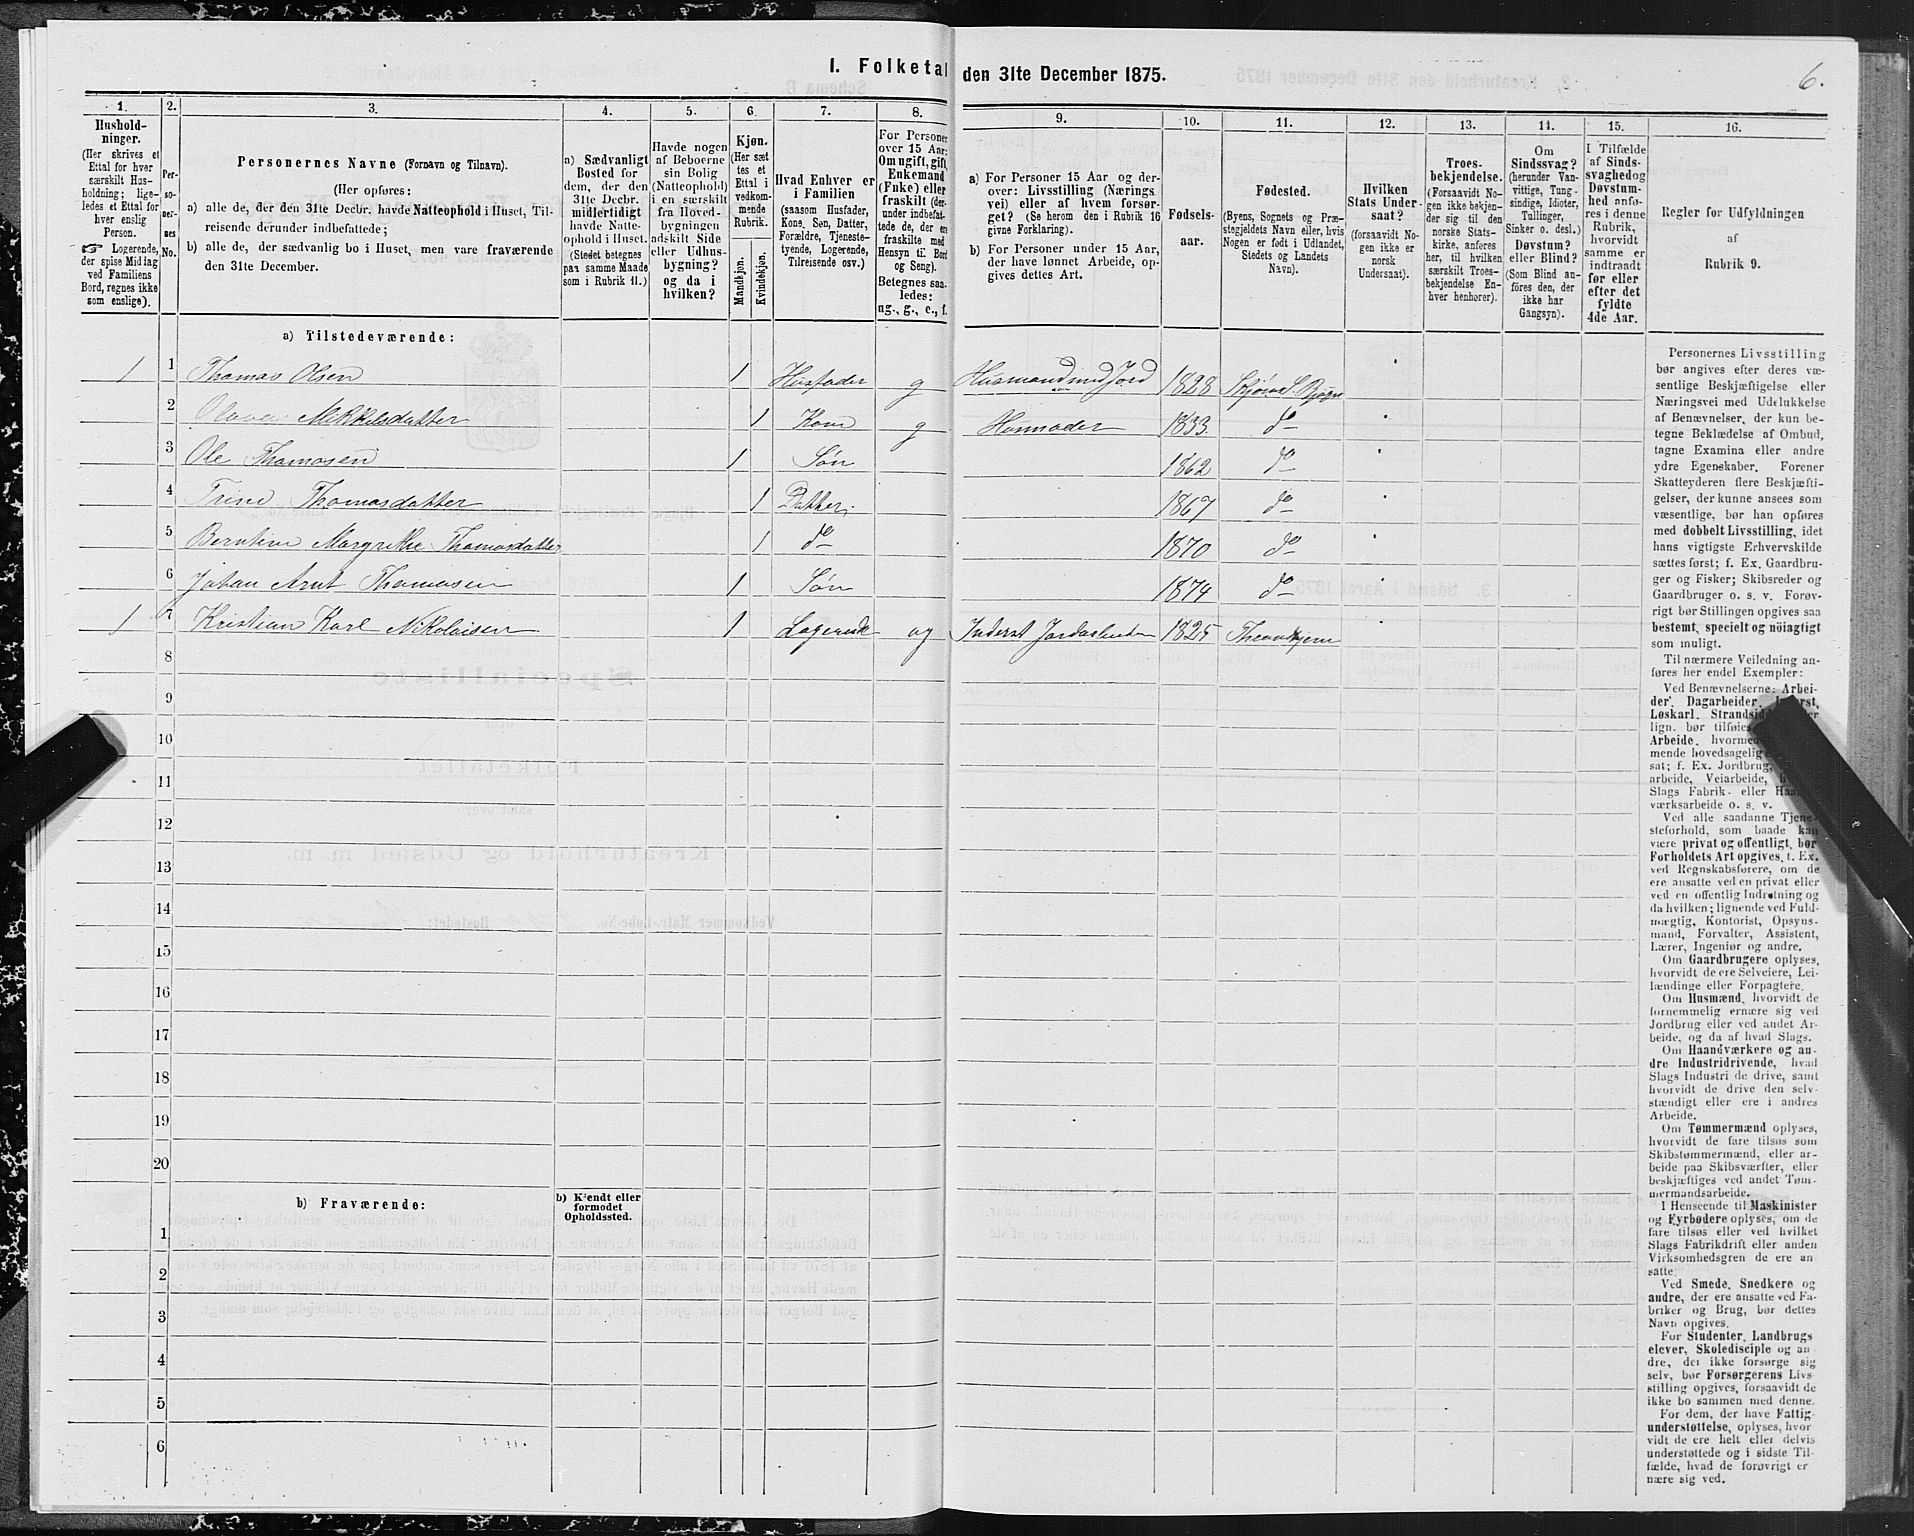 I. Folketal den 31te December 1875.
6.
1.
Hushold-
ninger.
(Her skrives et
Ettal for hver
særskilt Hus-
holdning; lige-
ledes et Ettal for
hver enslig
Person.
☞ Logerende,
der spise Midtag
ved Familiens
Bord, regnes ikke
som enslige).
2.
Per-
so-
ner-
nes
No.
3.
Personernes Navne (Fornavn og Tilnavn).
(Her opføres:
a) alle de, der den 31te Decbr. havde Natteophold i Huset, Til-
reisende derunder indbefattede;
b) alle de, der sædvanlig bo i Huset, men vare fraværende
den 31te December.
4.
a) Sædvanligt
Bosted for
dem, der den
31te Decbr.
midlertidigt
havde Natte-
ophold i Huset.
(Stedet betegnes
paa samme Maade
som i Rubrik 11.)
5.
Havde nogen
af Beboerne
sin Bolig
(Natteophold)
i en særskilt
fra Hoved-
bygningen
adskilt Side
eller Udhus-
bygning?
og da i
hvilken?
6.
Kjøn.
(Her sæt
tes et
Ettal i
vedkom-
mende
Rubrik.
Mandkjøn.
Kvindekjøn.
7.
Hvad Enhver er
i Familien
(saasom Husfader,
Kone, Søn, Datter,
Forældre, Tjeneste-
tyende, Logerende,
Tilreisende osv.)
8.
For Personer
over 15 Aar:
Om ugift, gift,
Enkemand
(Enke) eller
fraskilt (der-
under indbefat-
tede de, der ere
fraskilte med
Hensyn til Bord
og Seng).
Betegnes saa-
ledes:
ug., g., e., f.
9.
a) For Personer 15 Aar og der-
over: Livsstilling (Nærings
vei) eller af hvem forsør-
get? (Se herom den i Rubrik 16
givne Forklaring).
b) For Personer under 15 Aar,
der have lønnet Arbeide, op-
gives dettes Art.
10.
Fødsels-
aar.
11.
Fødested.
(Byens, Sognets og Præ-
stegjeldets Navn eller, hvis
Nogen er født i Udlandet,
Stedets og Landets
Navn).
12.
Hvilken
Stats Under-
saat?
(forsaavidt No-
gen ikke er
norsk
Undersaat).
13.
Troes-
bekjendelse.
(Forsaavidt No-
gen ikke bekjen-
der sig til den
norske Stats-
kirke, anføres
her, til hvilken
særskilt Troes-
bekjendelse En-
hver henhører).
14.
Om
Sindssvag?
(herunder Van-
vittige, Tung-
sindige, Idioter,
Tullinger,
Sinker o. desl.)
Døvstum?
eller Blind?
(Som Blind an-
føres den, der
ikke har
Gangsyn).
15.
I Tilfælde
af Sinds-
svaghedog
Døvstum-
hed anfø-
res i denne
Rubrik,
hvorvidt
samme er
indtraadt
før eller
efter det
fyldte
4de Aar.
16.
Regler for Udfyldningen
af
Rubrik 9.
a) Tilstedeværende:
1 1 Thomas Olsen 1 Husfader g Husmand med Jord 1828
2 Mikkelsdatter 1 Kone g Husmoder 1833 do
3 Ole Thomasen 1 Søn 1862 do
4 Trine Thomasdatter 1 Datter 1867 do
5 Berntine Margrethe Thomasdatter 1 do 1870 do
6 Johan Arnt Thomasen 1 Søn 1874 do
1 7 Kristian Karl Nikolaisen 1 Logerende ug Inderst 1825
8
9
10
11
12
13
14
15
16
17
18
19
20
b) Fraværende:
b) Kjendt eller
formodet
Opholdssted.
1
2
3
4
5
6
Personernes Livsstilling
bør angives efter deres væ-
sentlige Beskjæftigelse eller
Næringsvei med Udelukkelse
af Benævnelser, der kun be-
tegne Beklædelse af Ombud,
tagne Examina eller andre
ydre Egenskaber. Forener
Skatteyderen flere Beskjæfti-
gelser, der kunne ansees som
væsentlige, bør han opføres
med dobbelt Livsstilling, idet
hans vigtigste Erhvervskilde
sættes først; f. Ex. Gaardbru-
ger og Fisker; Skibsreder og
Gaardbruger o. s. v. Forøv-
rigt bør Stillingen opgives saa
bestemt, specielt og nöiagtigt
som muligt.
Til nærmere Veiledning an-
føres her endel Exempler:
Ved Benævnelserne: Arbei-
der, Dagarbeider,
Løskarl,
lign. bør tilføies
Arbeide,
mende hovedsagelig
sat; f. Ex. Jordbrug,
arbeide, Veiarbeide,
Slags Fabrik- eller
værksarbeide o. s. v.
Ved alle saadanne Tjene-
steforhold, som baade kan
være privat og offentligt, bør
Forholdets Art opgives, f. Ex.
ved Regnskabsførere, om de
ere ansatte ved en privat eller
ved en offentlig Indretning og
da hvilken; lignende ved Fuld-
mægtig, Kontorist, Opsyns-
mand, Forvalter, Assistent,
Lærer, Ingeniør og andre.
Om Gaardbrugere oplyses,
hvorvidt de ere Selveiere, Lei-
lændinge eller Forpagtere.
Om Husmænd, hvorvidt de
fornemmelig ernære sig ved
Jordbrug eller ved andet Ar-
beide, og da af hvad Slags.
Om Haandværkere og an-
dre Industridrivende, hvad
Slags Industri de drive, samt
hvorvidt de drive den selv-
stændigt eller ere i andres
Arbeide.
Om Tømmermænd oplyses,
hvorvidt de fare tilsøs som
Skibstømmermænd, eller ar-
beide paa Skibsværfter, eller
beskjæftiges ved andet Tøm-
mermandsarbeide.
I Henseende til Maskinister
og Fyrbødere oplyses, om de
fare tilsøs eller ved hvilket
Slags Fabrikdrift eller anden
Virksomhedsgren de ere an-
satte.
Ved Smede, Snedkere og
andre, der ere ansatte ved Fa-
briker og Brug, bør dettes
Navn opgives.
For Studenter, Landbrugs
elever, Skoledisciple og an
dre, der ikke forsørge sig
selv, bør Forsørgerens Livs-
stilling opgives, forsaavidt de
ikke bo sammen med denne.
For dem, der have Fattig-
understøttelse, oplyses, hvor
vidt de ere helt eller delvis
understøttede og i sidste Til-
fælde, hvad de forøvrigt er
nære sig ved.